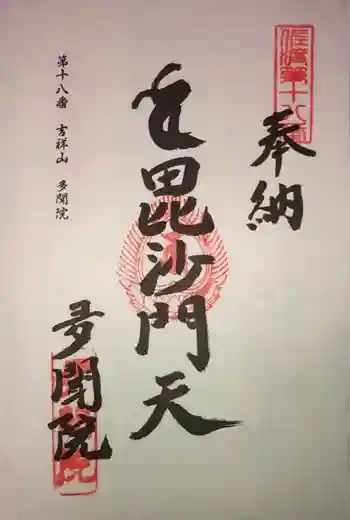 佐渡第十八番
奉納
毘沙門天
多聞院
第十八番 吉祥山 多聞院